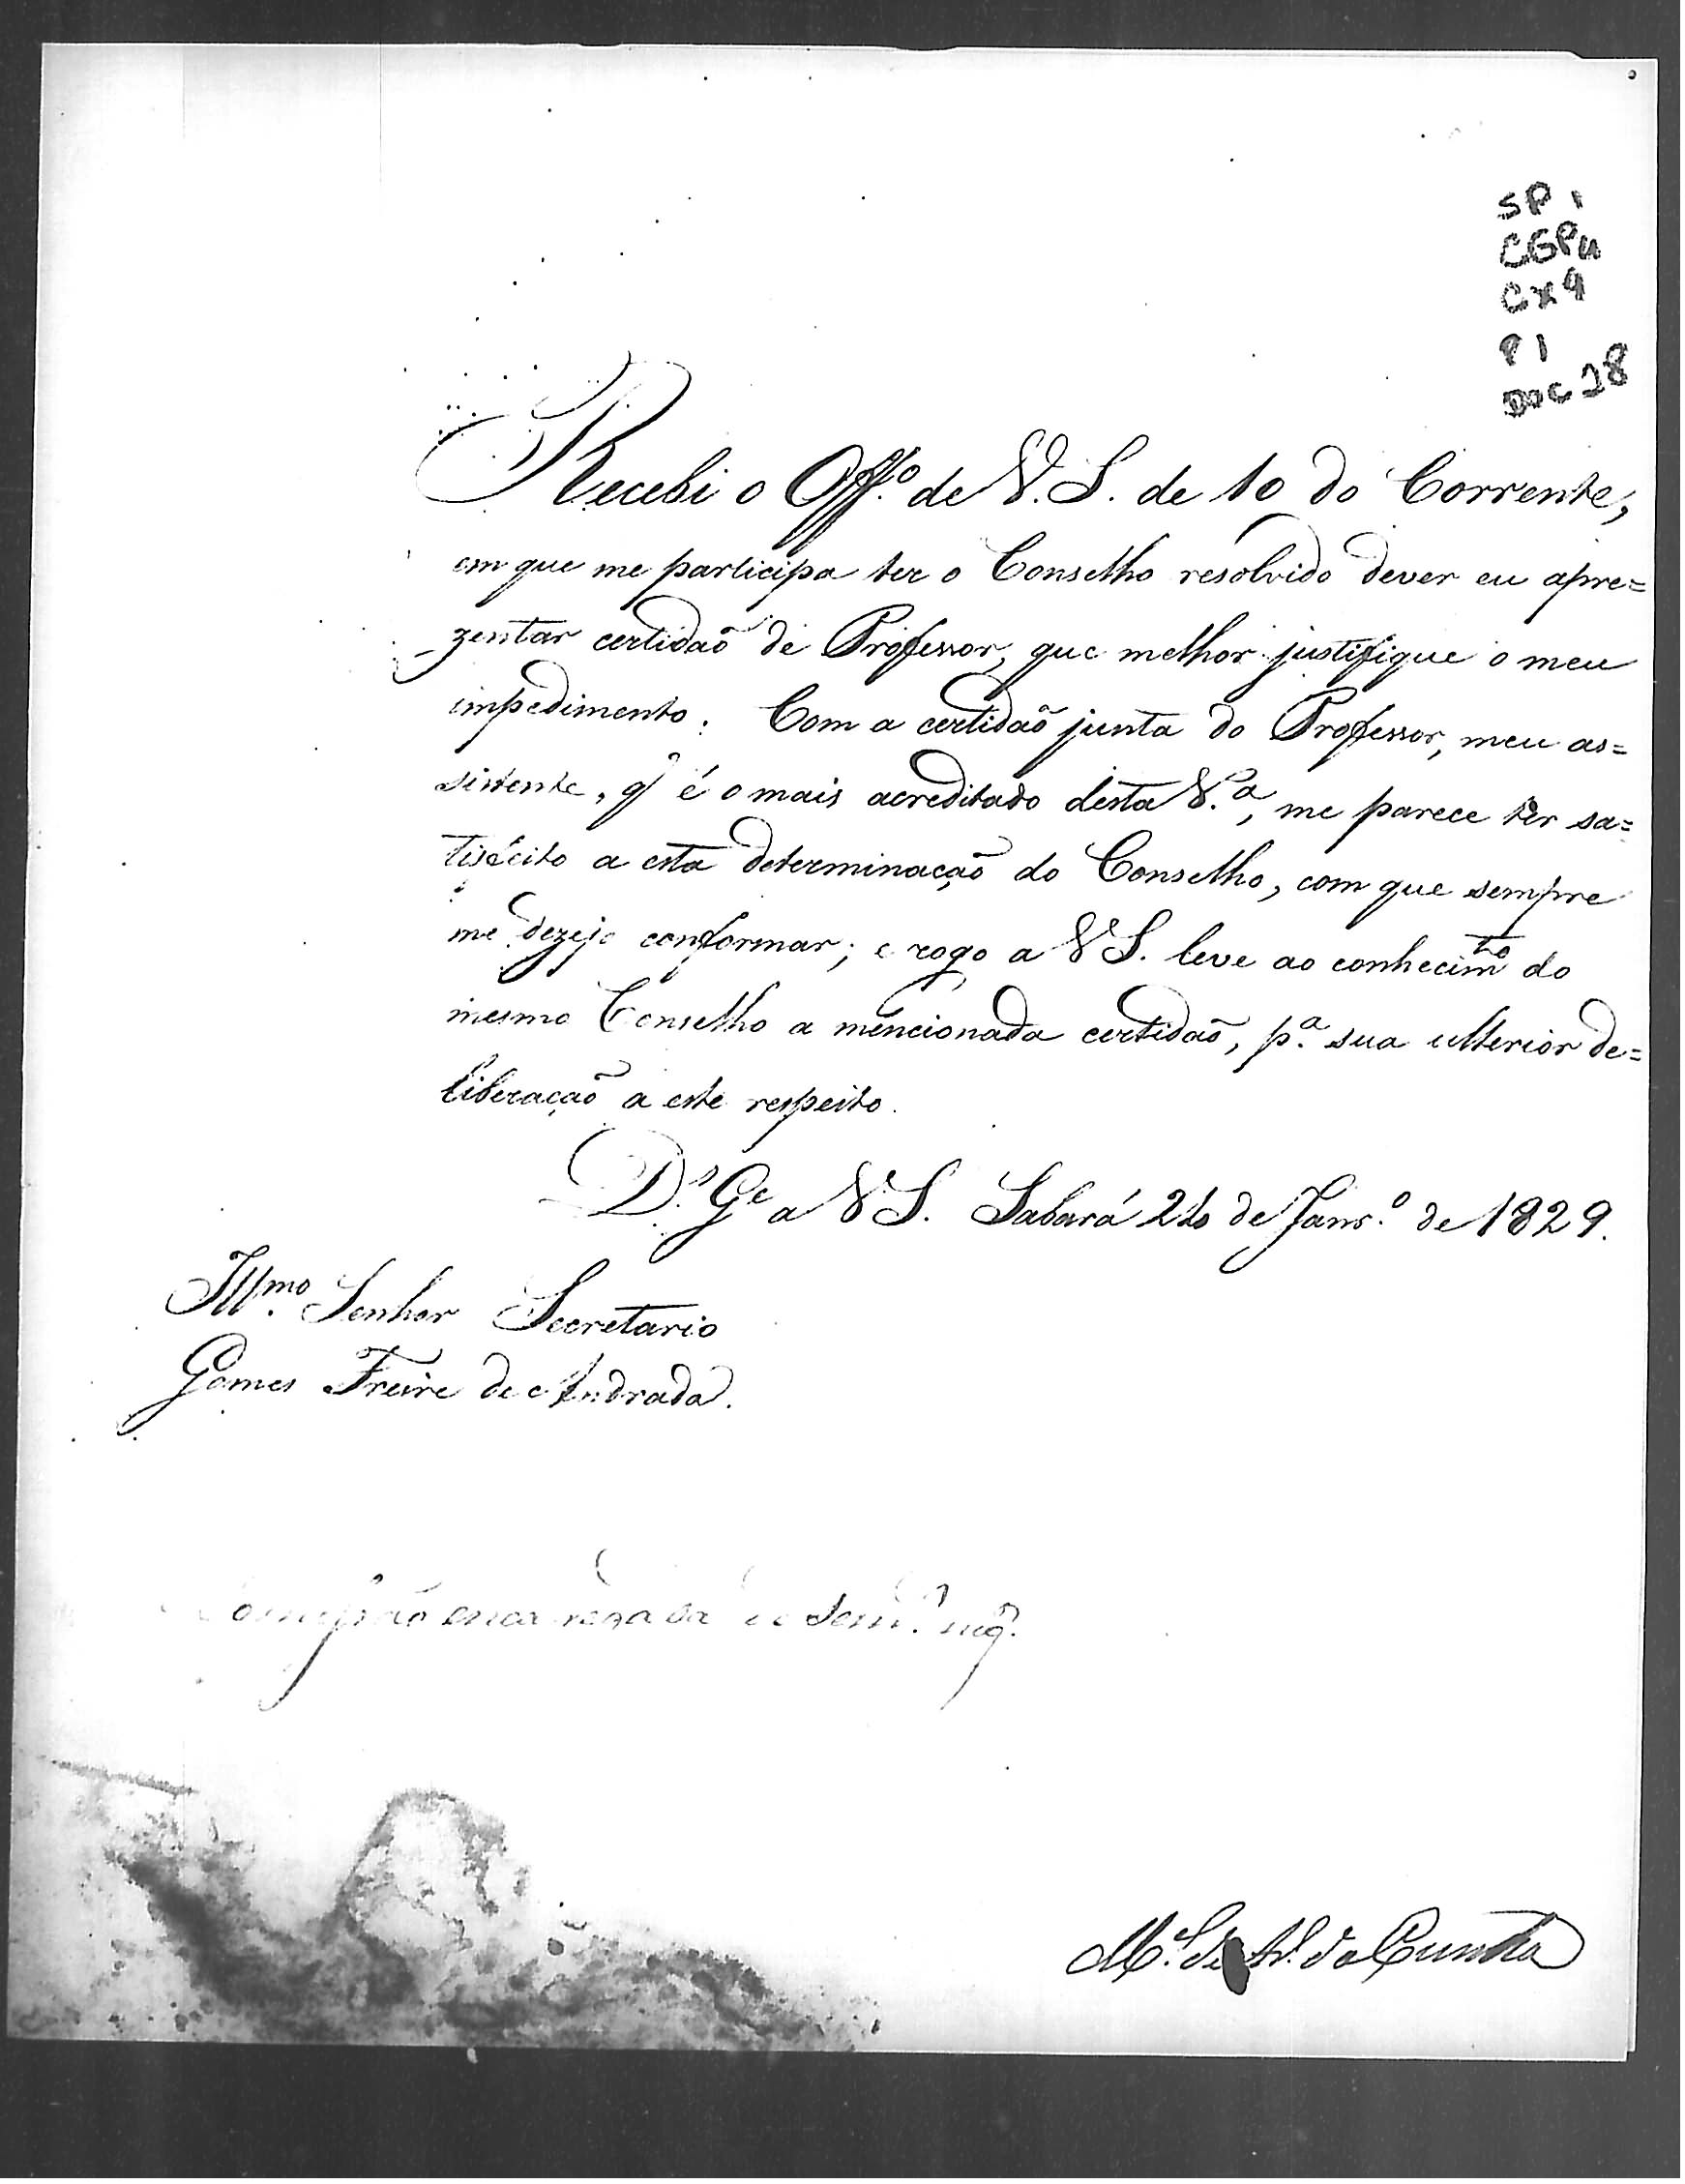 SP 1
CGP4
Cx 9
P1
DOC 28
Recebi o Off.º de V. S. de 10 do Corrente,
em que me participa ter o Conselho resolvido dever eu apre=
zentar certidaõ de Professor, que melhor justifique o meu
impedimento. Com a certidaõ junta do Professor, meu as=
sistente, q̃ é o mais acreditado desta V.ª, me parece ter sa=
tisfeito a esta determinaçaõ do Conselho, com que sempre
me dezejo conformar; e rogo a V S. leve ao conhecim.to do
mesmo Conselho a mencionada certidaõ, p.ª sua ulterior de=
liberaçaõ a este respeito.
D.s G.e a V S. Sabará de Janr.º de 1829.
Ill.mo Senhor Secretario
Gomes Freire de Andrada.
M.el de da Cunha